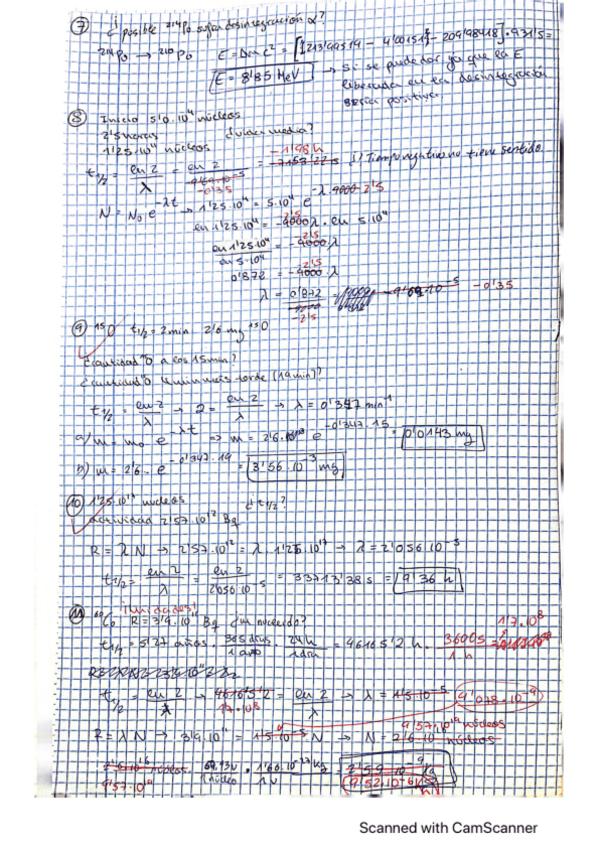 ⑦ ¿Es posible ²¹⁴Po sufra desintegración α?
²¹⁴Po → ²¹⁰Po E = Δm c² = [213'99519 - 4'00151 - 209'98418] · 931'5 =
E = 8'85 MeV → Si se puede dar ya que la E
liberada en la desintegración
sería positiva.
⑧ Inicio 5'0·10¹¹ núcleos
2'5 horas ¿vida media?
1'25·10¹¹ núcleos
-1'98 h
t1/2 = ln 2 / λ = ln 2 / = -7153'22 s Tiempo negativo no tiene sentido.
-0'35
N = N₀ e^-λt → 1'25·10¹¹ = 5·10¹¹ e^-λ·9000 2'5
ln 1'25·10¹¹ = -9000 λ · ln 5·10¹¹
2'5
ln 1'25·10¹¹ / ln 5·10¹¹ = -9000 λ
-2'5
0'872 = -9000 · λ
-2'5
λ = 0'872 / = -9'69·10⁻⁵ -0'35
-2'5
⑨ ¹⁵O t1/2 = 2 min 2'6 mg ¹⁵O
¿cantidad ¹⁵O a los 15 min?
¿cantidad ¹⁵O 4 min más tarde (19 min)?
t1/2 = ln 2 / λ → 2 = ln 2 / λ → λ = 0'347 min⁻¹
a) m = m₀ e^-λt ⇒ m = 2'6 e^-0'347·15 = 0'0143 mg
b) m = 2'6 · e^-0'347·19 = 3'56·10⁻³ mg
⑩ 1'25·10¹⁷ nucleos ¿t1/2?
Actividad 2'57·10¹² Bq
R = λ N → 2'57·10¹² = λ · 1'25·10¹⁷ → λ = 2'056·10⁻⁵
t1/2 = ln 2 / λ = ln 2 / 2'056·10⁻⁵ = 33713'38 s = 9'36 h
¡Unidades!
⑪ ⁶⁰Co R = 3'9·10¹¹ Bq ¿m nucleido?
1'7·10⁸
t1/2 = 5'27 años · 365 días / 1 año · 24 h / 1 día = 46165'2 h · 3600 s / 1 h =
t1/2 = ln 2 / λ → 46165'2 = ln 2 / λ → λ = 1'5·10⁻⁵ 4'078·10⁻⁹
1'7·10⁸
9'57·10¹⁹ núcleos
R = λ N → 3'9·10¹¹ = 1'5·10⁻⁵ N → N = 2'6·10¹⁶ núcleos
2'6·10¹⁶ núcleos · 59,93 u / 1 núcleo · 1'66·10⁻²⁷ kg / 1 u = 2'59·10⁻⁹ kg
9'57·10¹⁹ 9'52·10⁻⁶ kg
Scanned with CamScanner